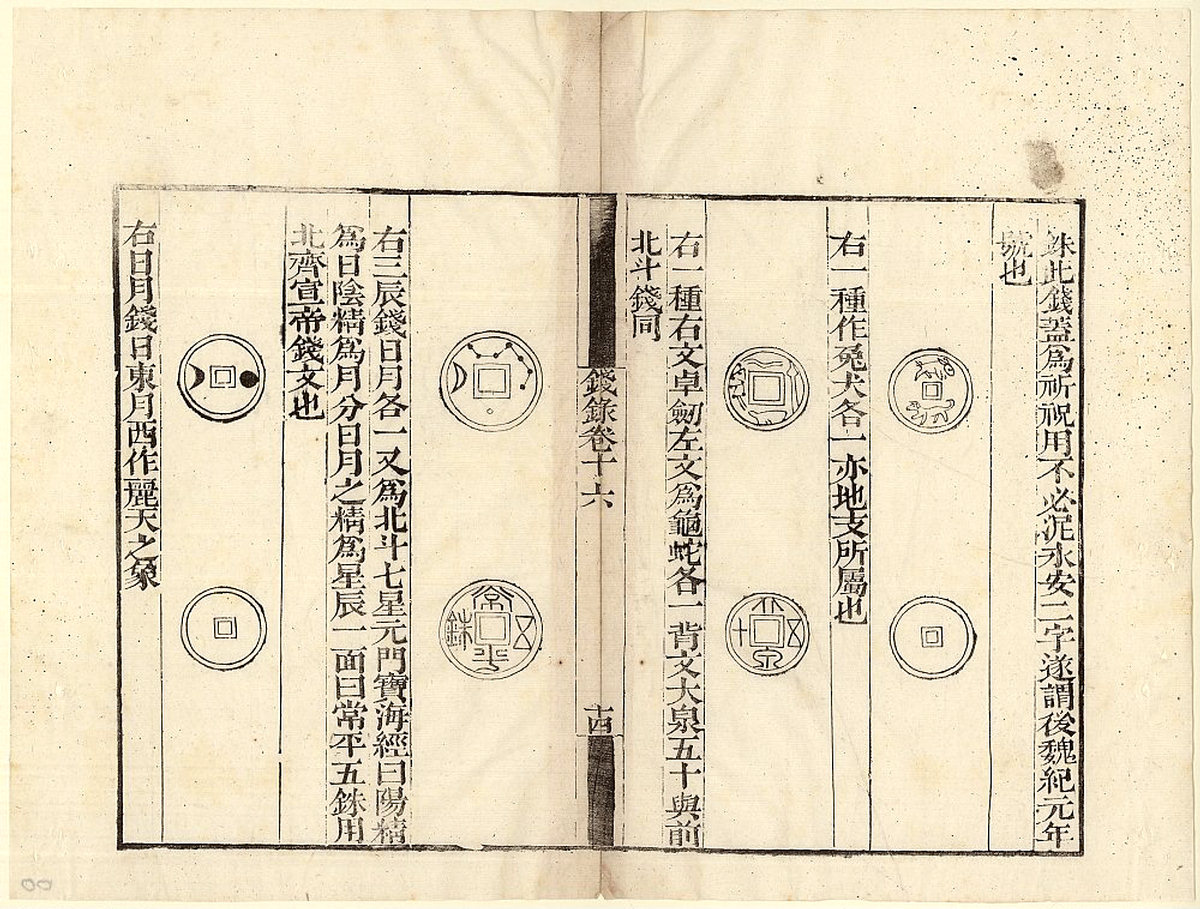 銖此錢蓋爲祈祝用不必泥永安二字遂謂後魏紀元年
號也
右一種作兔犬各一亦地支所屬也
大泉五十
右一種右文卓劒左文爲龜蛇各一背文大泉五十與前
北斗錢同
錢錄卷十六
十四
常平五銖
右三辰錢日月各一又爲北斗七星元門寶海經曰陽精
爲日陰精爲月分日月之精爲星辰一面曰常平五銖用
北齊宣帝錢文也
右日月錢日東月西作麗天之象